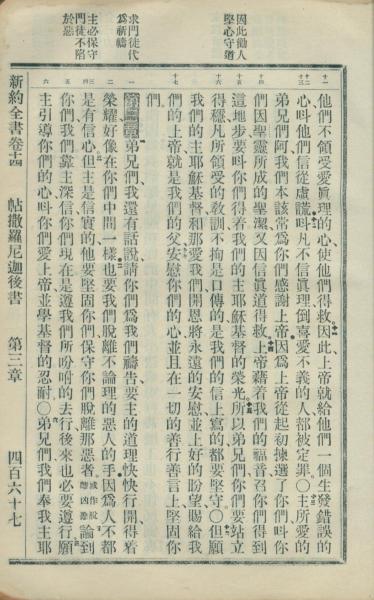 因此勸人
堅心守道
求門徒代
為祈禱
主必保守
門徒不陷
於惡
十一
十二
十三
十四
十五
十六
十七
他們不領受愛眞理的心使他們得救因此上帝就給他們一個生發錯誤的
心呌他們信從虛謊呌凡不信眞理倒喜愛不義的人都被定罪〇主所愛的
弟兄們阿我們本該常為你們感謝上帝因為上帝從起初揀選了你們呌你
們因聖靈所成的聖潔又因信眞道得救上帝藉着我們的福音召你們得到
這地步要呌你們得着我們的主耶穌基督的榮光所以弟兄們你們要站立
得穩凡所領受的教訓不拘是口傳的是我們的信上寫的都要堅守〇但願
我們的主耶穌基督和那愛我們開恩將永遠的安慰並上好的盼望賜給我
們的上帝就是我們的父安慰你們的心並且在一切的善行善言上堅固你
們
一
二
三
四
五
六
第三章弟兄們我還有話說請你們為我們禱告要主的道理快快行開得着
榮耀好像在你們中間一樣也要我們脫離不論理的惡人的手因為人不都
是有信心但主是信實的他要堅固你們保守你們脫離那惡者或作脫離凶惡論到
你們我們靠主深信你們現在是遵我們所吩咐的去行後來也必要遵行願
主引導你們的心呌你們愛上帝並學基督的忍耐〇弟兄們我們奉我主耶
新約全書卷十四　帖撒羅尼迦後書　第三章　四百六十七